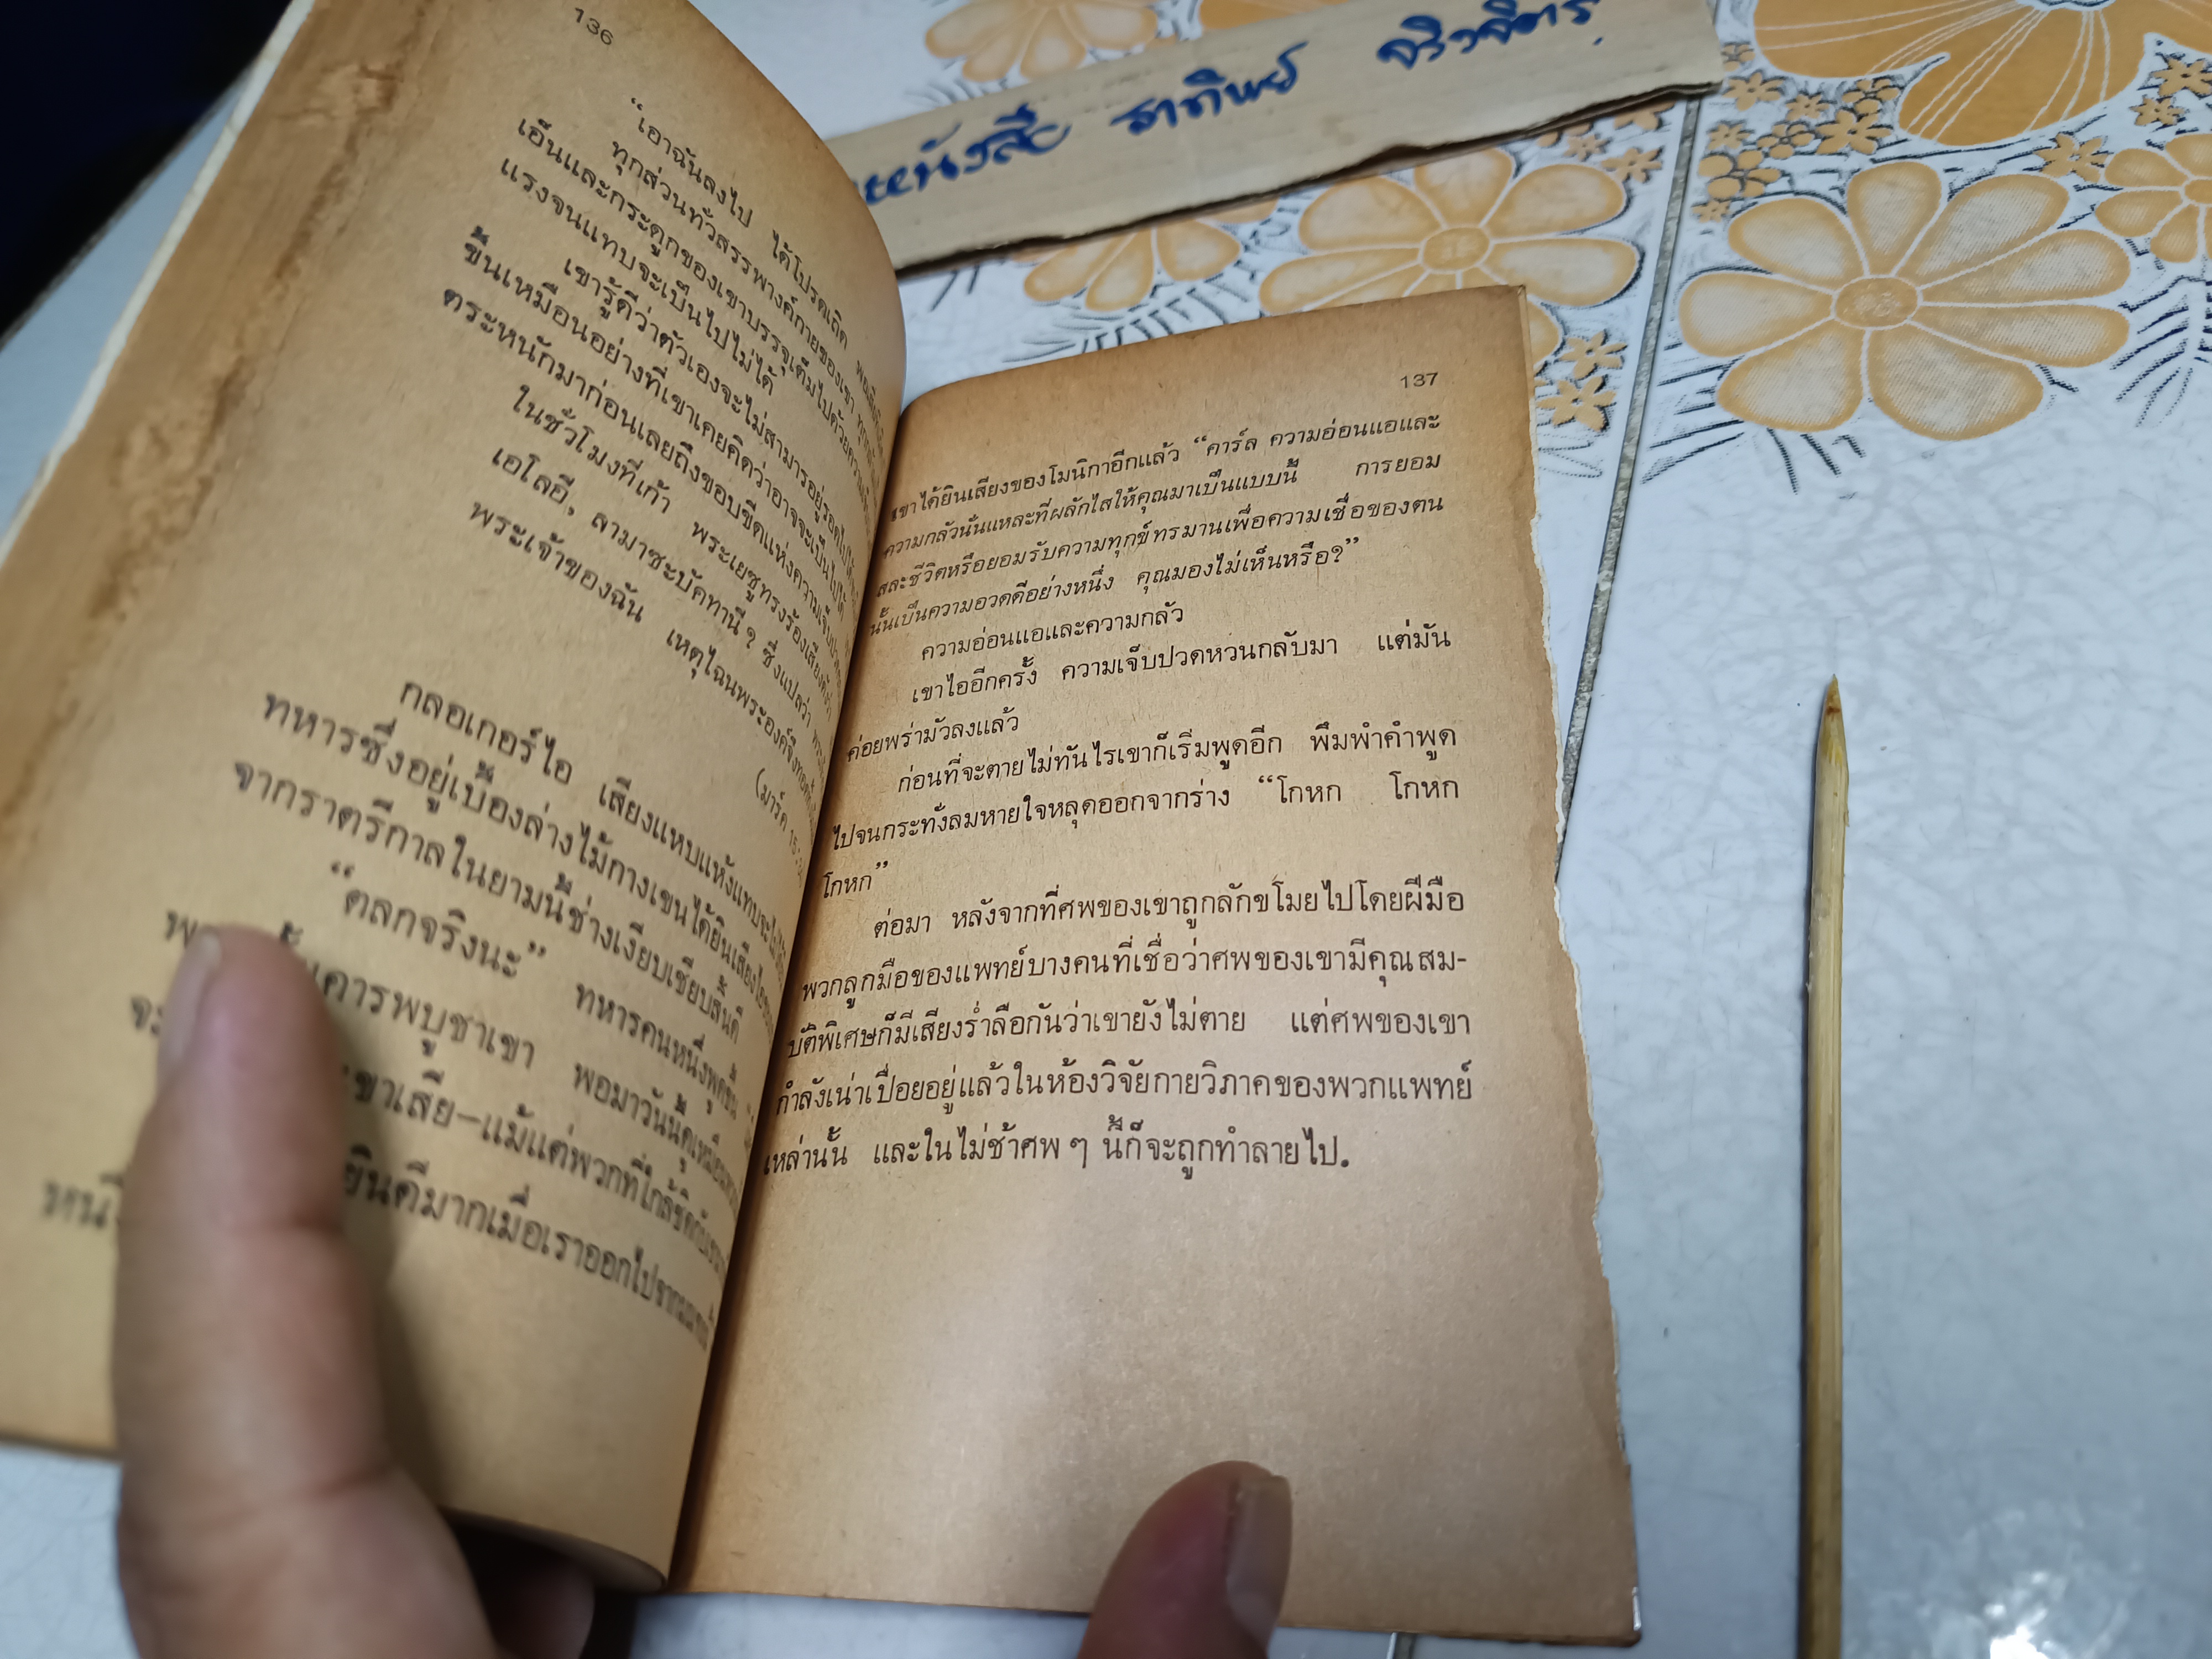 136
“เอาฉันลงไป ได้โปรดเถิด
ทุกส่วนทั่วสรรพางค์กายของเขา
เอ็นและกระดูกของเขาบรรจุเต็มไปด้วยความ
แรงจนแทบจะเป็นไปไม่ได้
เขารู้ดีว่าตัวเองจะไม่สามารถอยู่รอดไปได้
ขึ้นเหมือนอย่างที่เขาเคยคิดว่าอาจจะเป็นไปได้
ตระหนักมาก่อนเลยถึงขอบขีดแห่งความเจ็บปวด
ในชั่วโมงที่เก้า พระเยซูทรงร้องเสียงดังว่า
เอโลอี, ลามาซะบัคทานี ? ซึ่งแปลว่า
พระเจ้าของฉัน เหตุไฉนพระองค์จึงทอดทิ้ง
(มาร์ค 15
กลอเกอร์ไอ เสียงแหบแห้งแทบจะไม่ได้ยิน
ทหารซึ่งอยู่เบื้องล่างไม้กางเขนได้ยินเสียงไอ
จากราตรีกาลในยามนี้ช่างเงียบเชียบสิ้นดี
“ตลกจริงนะ” ทหารคนหนึ่งพูดขึ้น
เคารพบูชาเขา พอมาวันนี้ดูเหมือน
เขาเสีย—แม้แต่พวกที่ใกล้ชิดกับเขา
ยินดีมากเมื่อเราออกไปจาก
หนังสือ ธาทิพย์
137
เขาได้ยินเสียงของโมนิกาอีกแล้ว “คาร์ล ความอ่อนแอและ
ความกลัวนั่นแหละที่ผลักไสให้คุณมาเป็นแบบนี้ การยอม
สละชีวิตหรือยอมรับความทุกข์ทรมานเพื่อความเชื่อของตน
นั้นเป็นความอวดดีอย่างหนึ่ง คุณมองไม่เห็นหรือ?”
ความอ่อนแอและความกลัว
เขาไออีกครั้ง ความเจ็บปวดหวนกลับมา แต่มัน
ค่อยพร่ามัวลงแล้ว
ก่อนที่จะตายไม่ทันไรเขาก็เริ่มพูดอีก พึมพำคำพูด
ไปจนกระทั่งลมหายใจหลุดออกจากร่าง “โกหก โกหก
โกหก”
ต่อมา หลังจากที่ศพของเขาถูกลักขโมยไปโดยฝีมือ
พวกลูกมือของแพทย์บางคนที่เชื่อว่าศพของเขามีคุณสม-
บัติพิเศษก็มีเสียงร่ำลือกันว่าเขายังไม่ตาย แต่ศพของเขา
กำลังเน่าเปื่อยอยู่แล้วในห้องวิจัยกายวิภาคของพวกแพทย์
เหล่านั้น และในไม่ช้าศพ ๆ นี้ก็จะถูกทำลายไป.